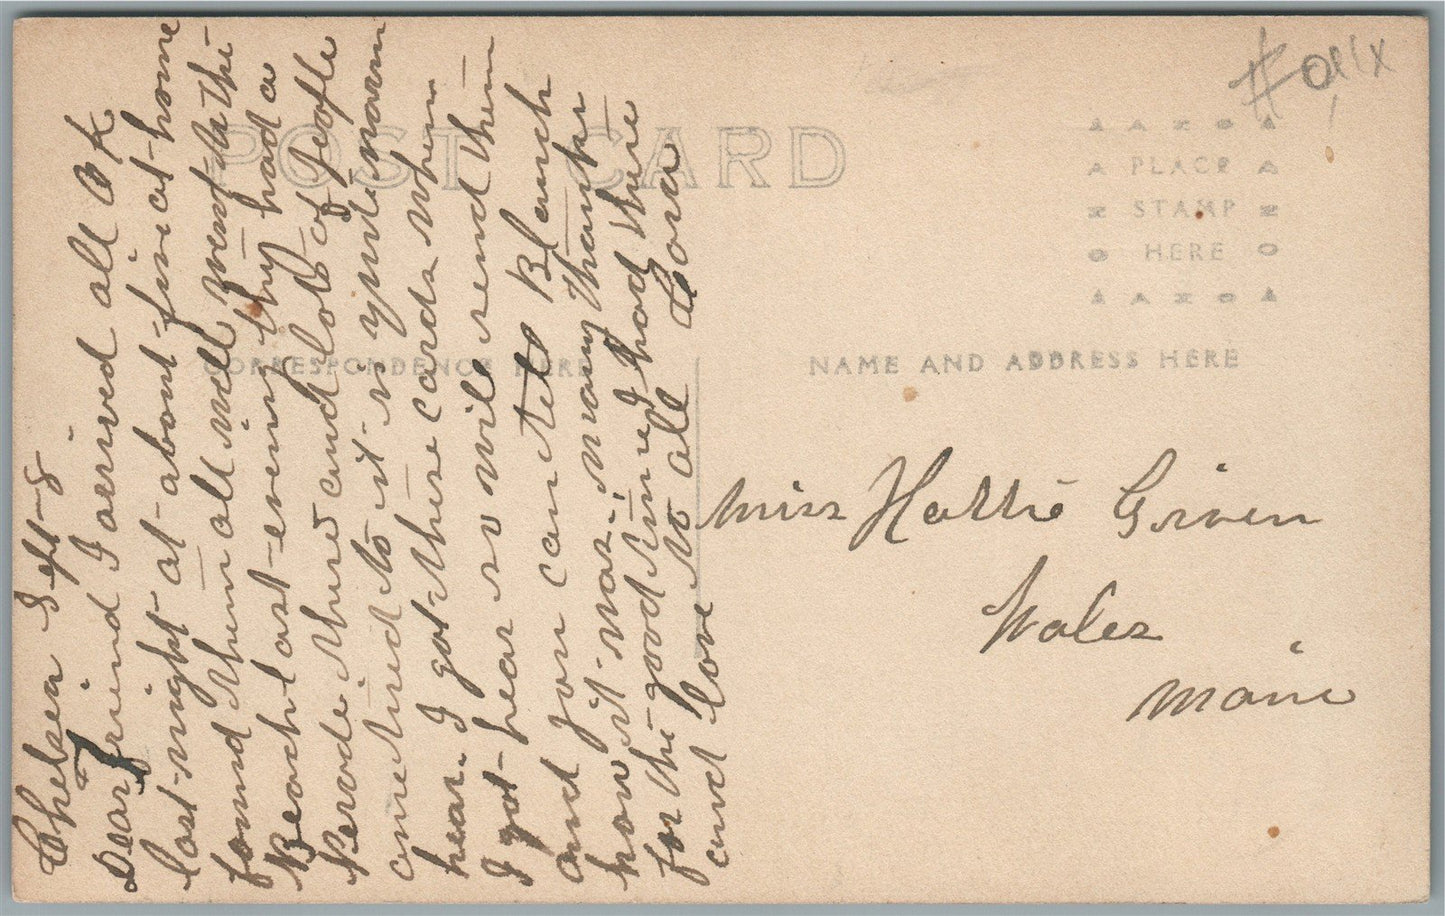 Chelsea Sept-8
Dear friend I arrived all OK
last-night-at-about-five at home
found them all well went-to the
Beach last-evening they had a
Perade there and lots of people
and tired to it-is quite warm
hear. I got-these cards when
I got-hear so will send them
and you can tell Blanch
how it-was., many thanks
for the good time I had there
and love to all Cora
POST CARD
CORRESPONDENCE HERE
NAME AND ADDRESS HERE
PLACE
STAMP
HERE
Miss Hattie Given
Wales
Maine